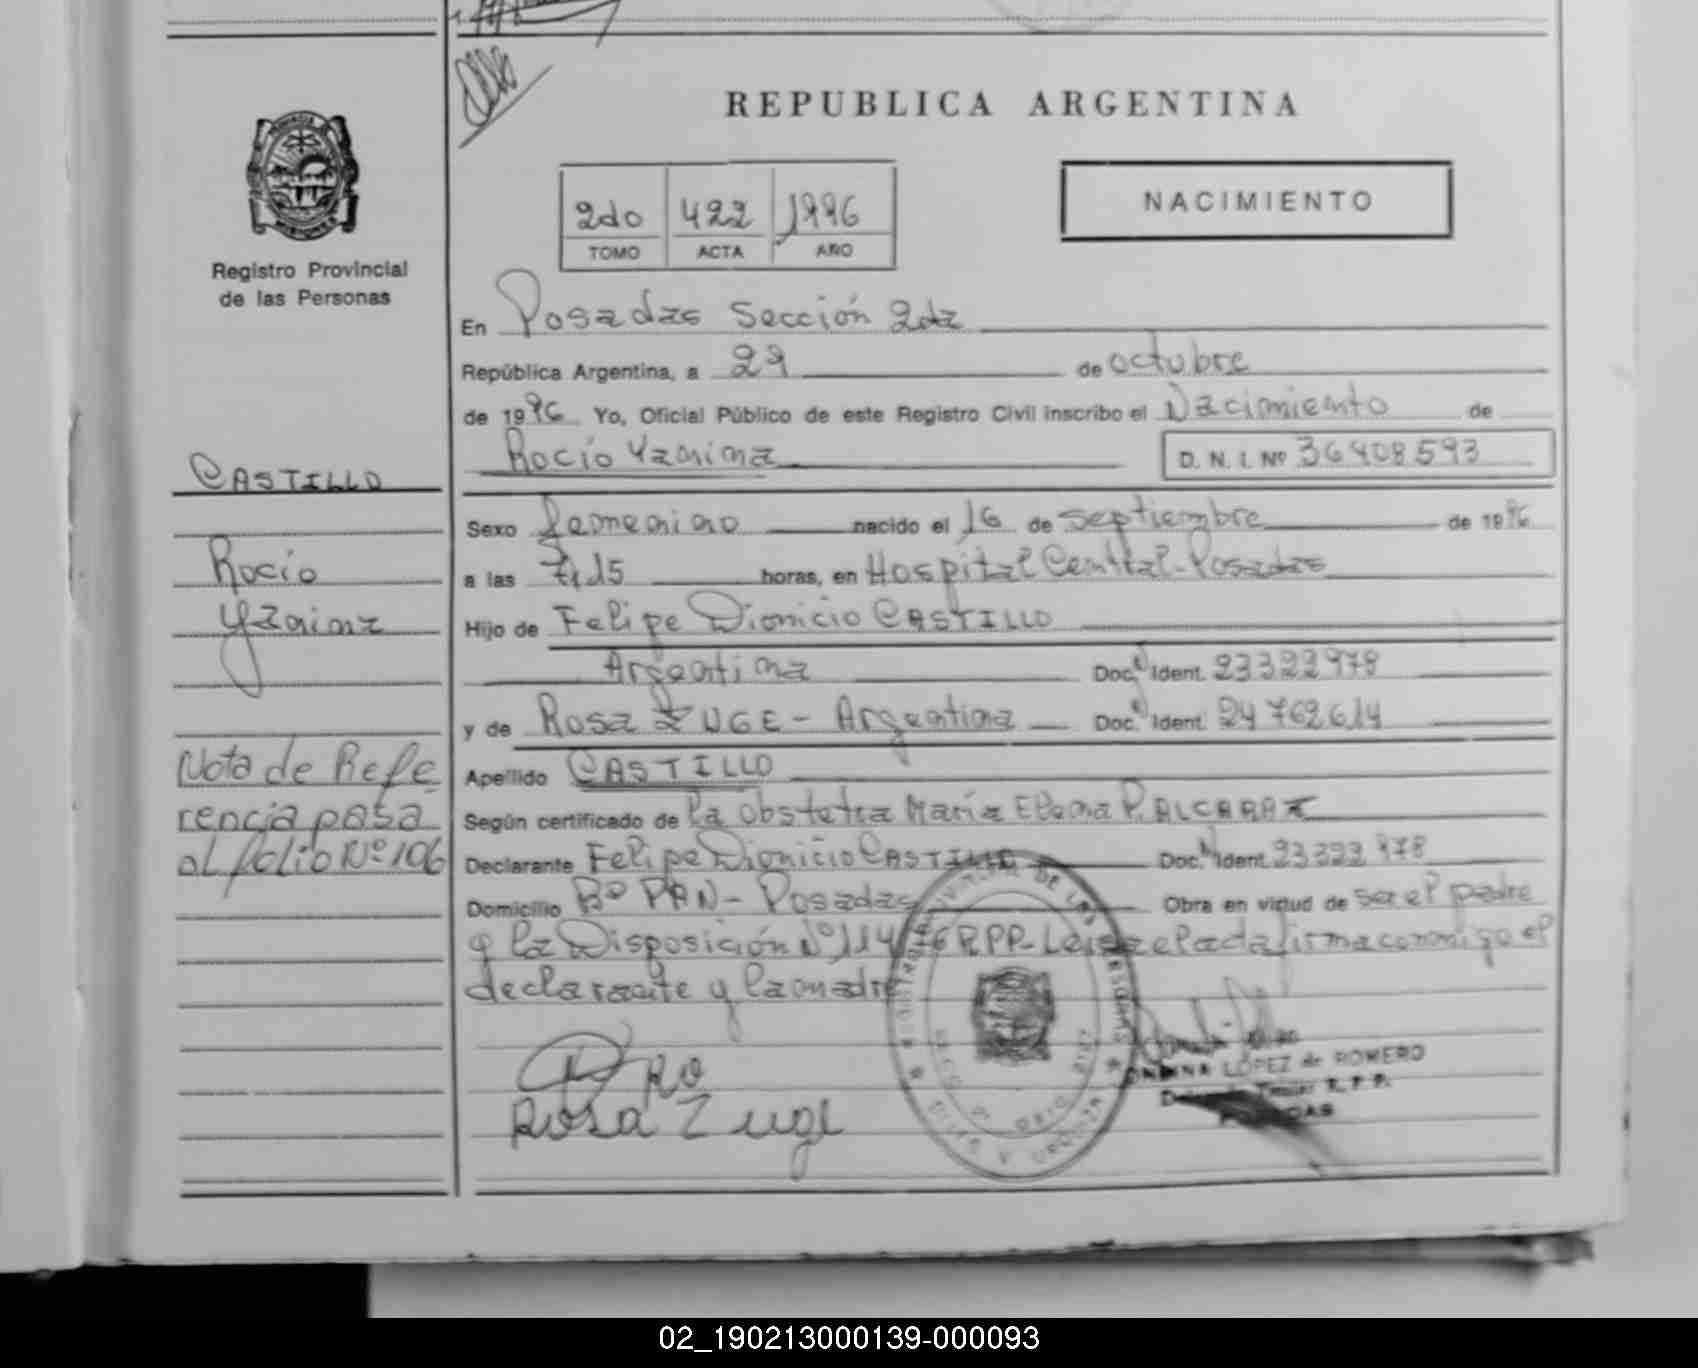 REPUBLICA ARGENTINA
2do 422 1996
TOMO ACTA AÑO
NACIMIENTO
Registro Provincial
de las Personas
En Posadas Sección 2da
República Argentina, a 29 de octubre
de 1996 Yo, Oficial Público de este Registro Civil inscribo el Nacimiento de
Rocío Yanina D. N. I. Nº 36408593
CASTILLO
Sexo femenino nacido el 16 de septiembre de 1996
Rocío
a las 7,15 horas, en Hospital Central-Posadas
Yanina
Hijo de Felipe Dionicio CASTILLO
Argentina Doc. Ident. 23322978
y de Rosa ZUGE - Argentina Doc. Ident. 24762614
Nota de Refe
Apellido CASTILLO
rencia pasa
Según certificado de la Obstetra María Elena P. ALCARAZ
al folio Nº 106
Declarante Felipe Dionicio CASTILLO Doc. Ident. 23322978
Domicilio Bº PAN - Posadas Obra en virtud de ser el padre
y la Disposición Nº 114/ RPP- Leída el acta firma conmigo el
declarante y la madre
Rosa Zuge
LÓPEZ de ROMERO
Titular R. P. P.
02_190213000139-000093